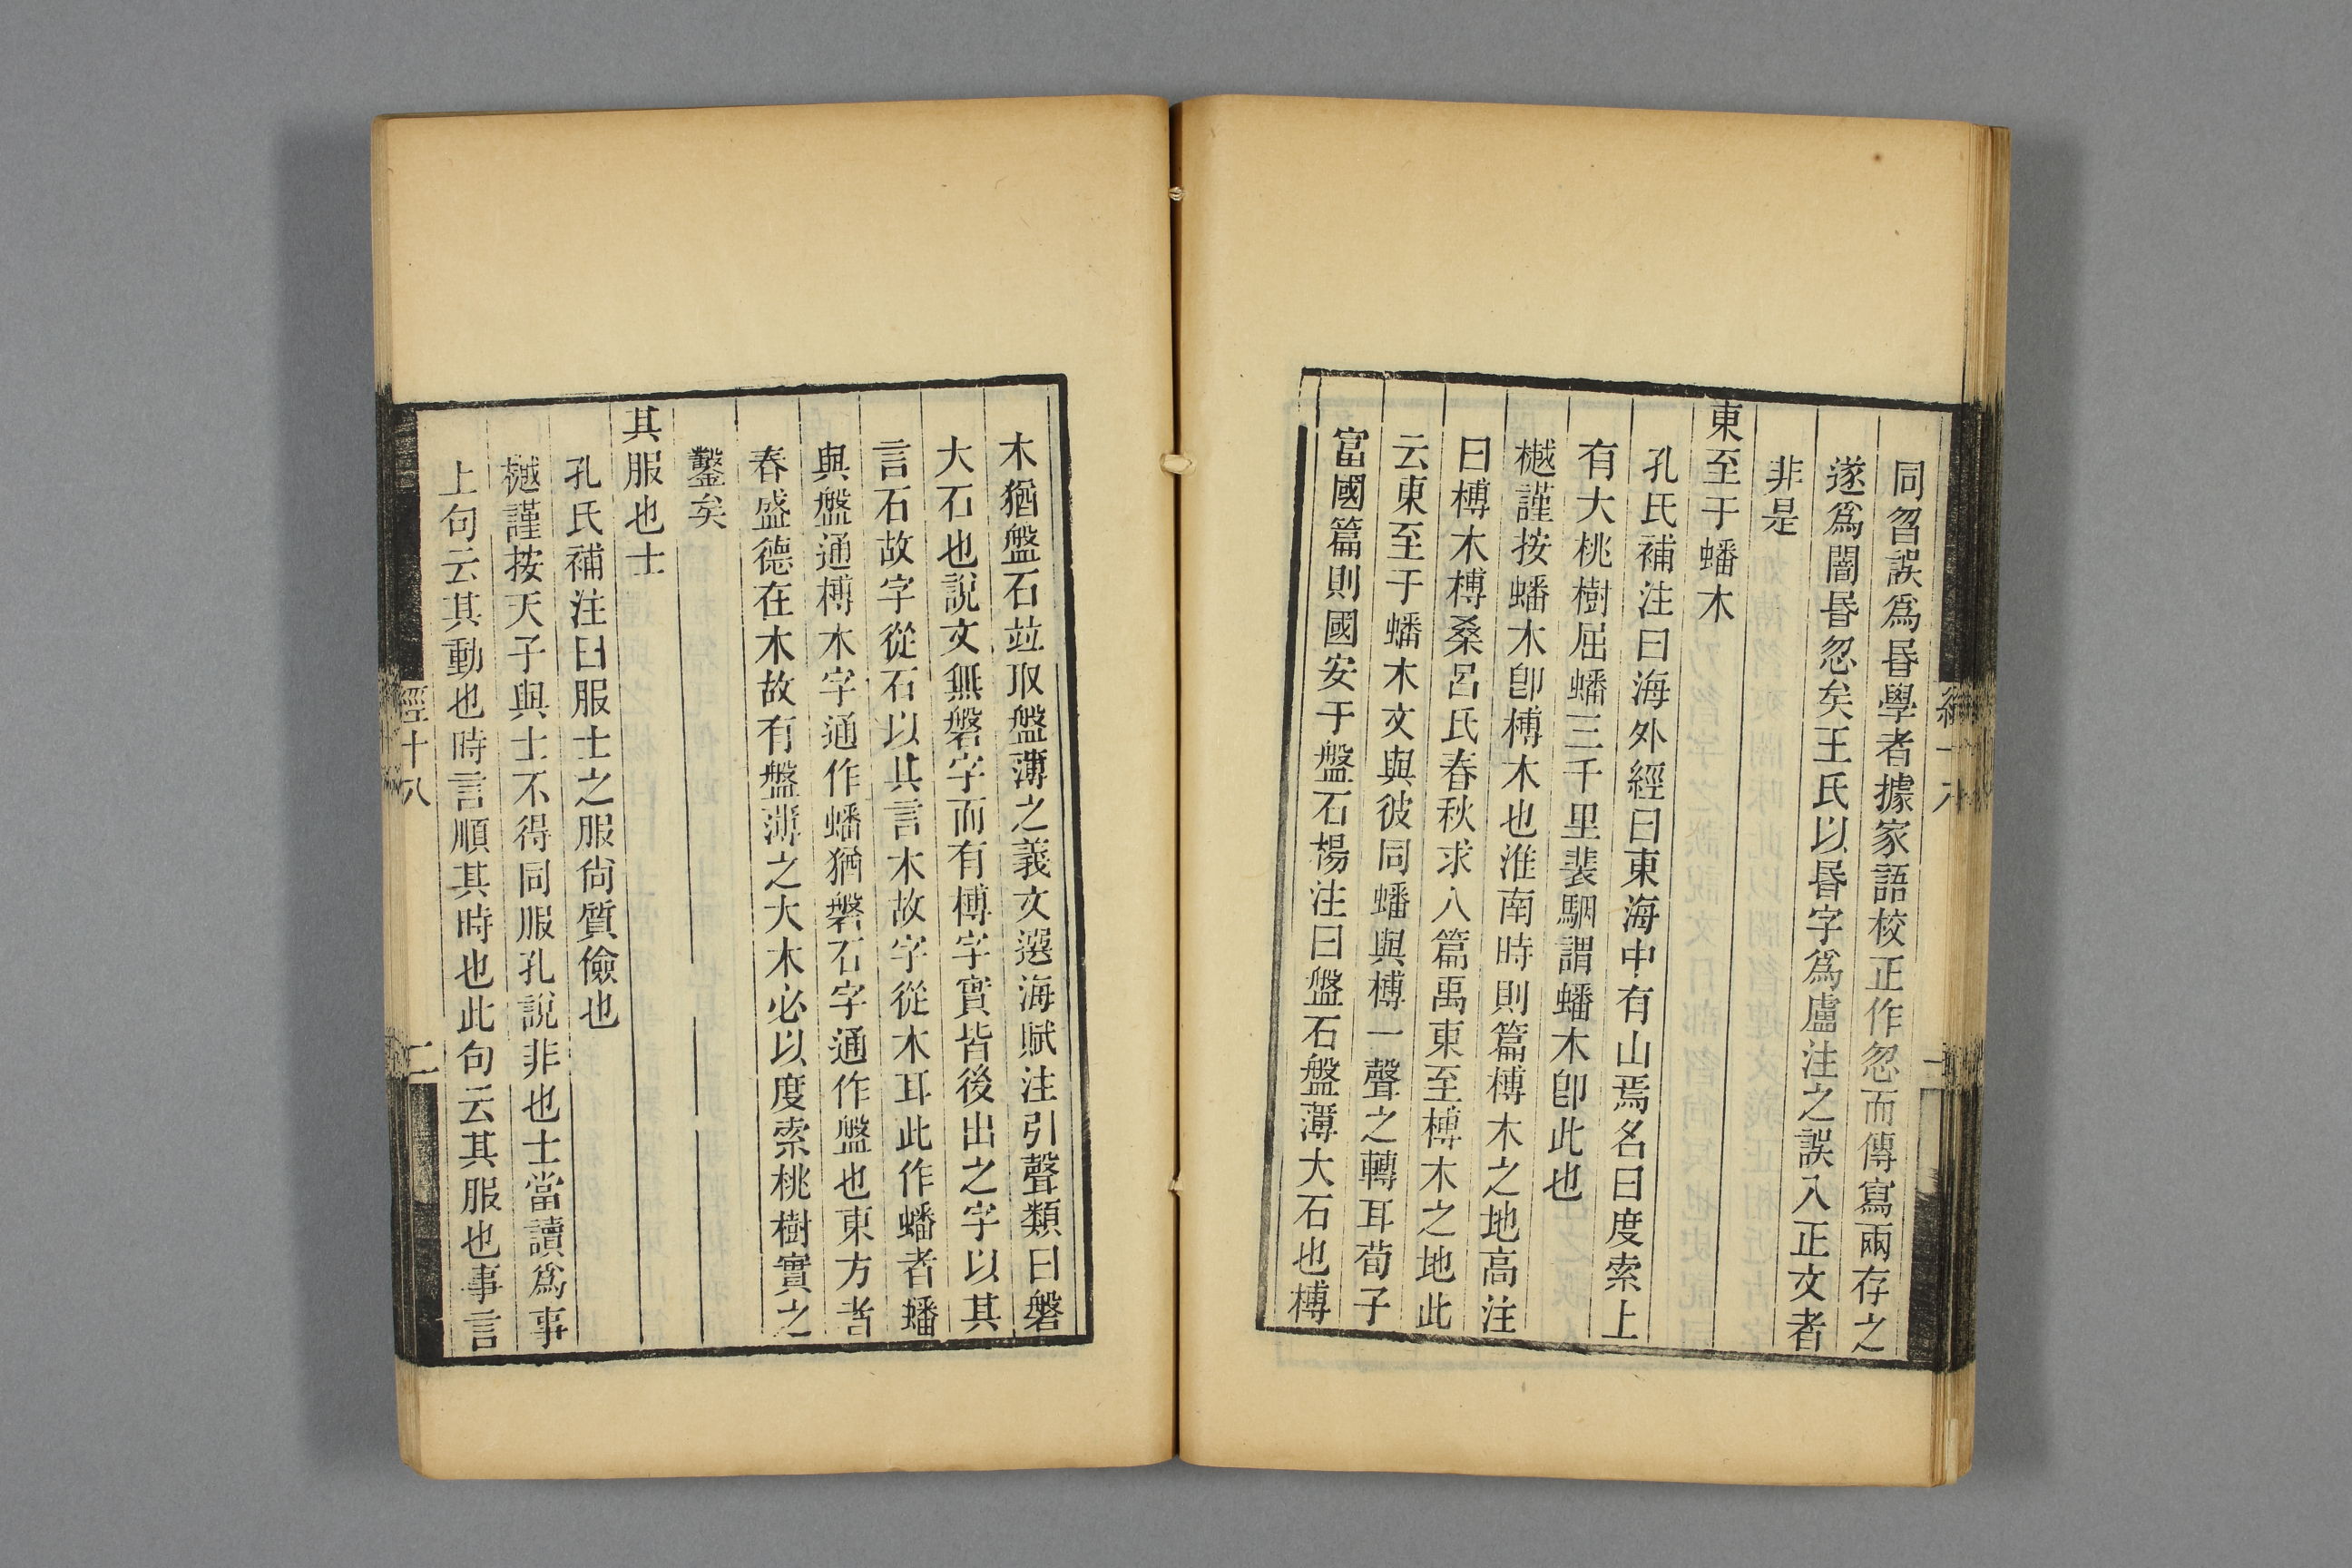 同曶誤爲昬學者據家語校正作忽而傳寫兩存之
遂爲闇昬忽矣王氏以昬字爲盧注之誤入正文者
非是
東至于蟠木
孔氏補注曰海外經曰東海中有山焉名曰度索上
有大桃樹屈蟠三千里裴駰謂蟠木卽此也
樾謹按蟠木卽榑木也淮南時則篇榑木之地高注
曰榑木榑桑呂氏春秋求人篇禹東至榑木之地此
云東至于蟠木文與彼同蟠與榑一聲之轉耳荀子
富國篇則國安于盤石楊注曰盤石盤薄大石也榑
木猶盤石竝取盤薄之義文選海賦注引聲類曰磐
大石也說文無磐字而有榑字實皆後出之字以其
言石故字從石以其言木故字從木耳此作蟠者蟠
與盤通榑木字通作蟠猶磐石字通作盤也東方者
春盛德在木故有盤薄之大木必以度索桃樹實之
鑿矣
其服也士
孔氏補注曰服士之服尙質儉也
樾謹按天子與士不得同服孔說非也士當讀爲事
上句云其動也時言順其時也此句云其服也事言
經十八
二